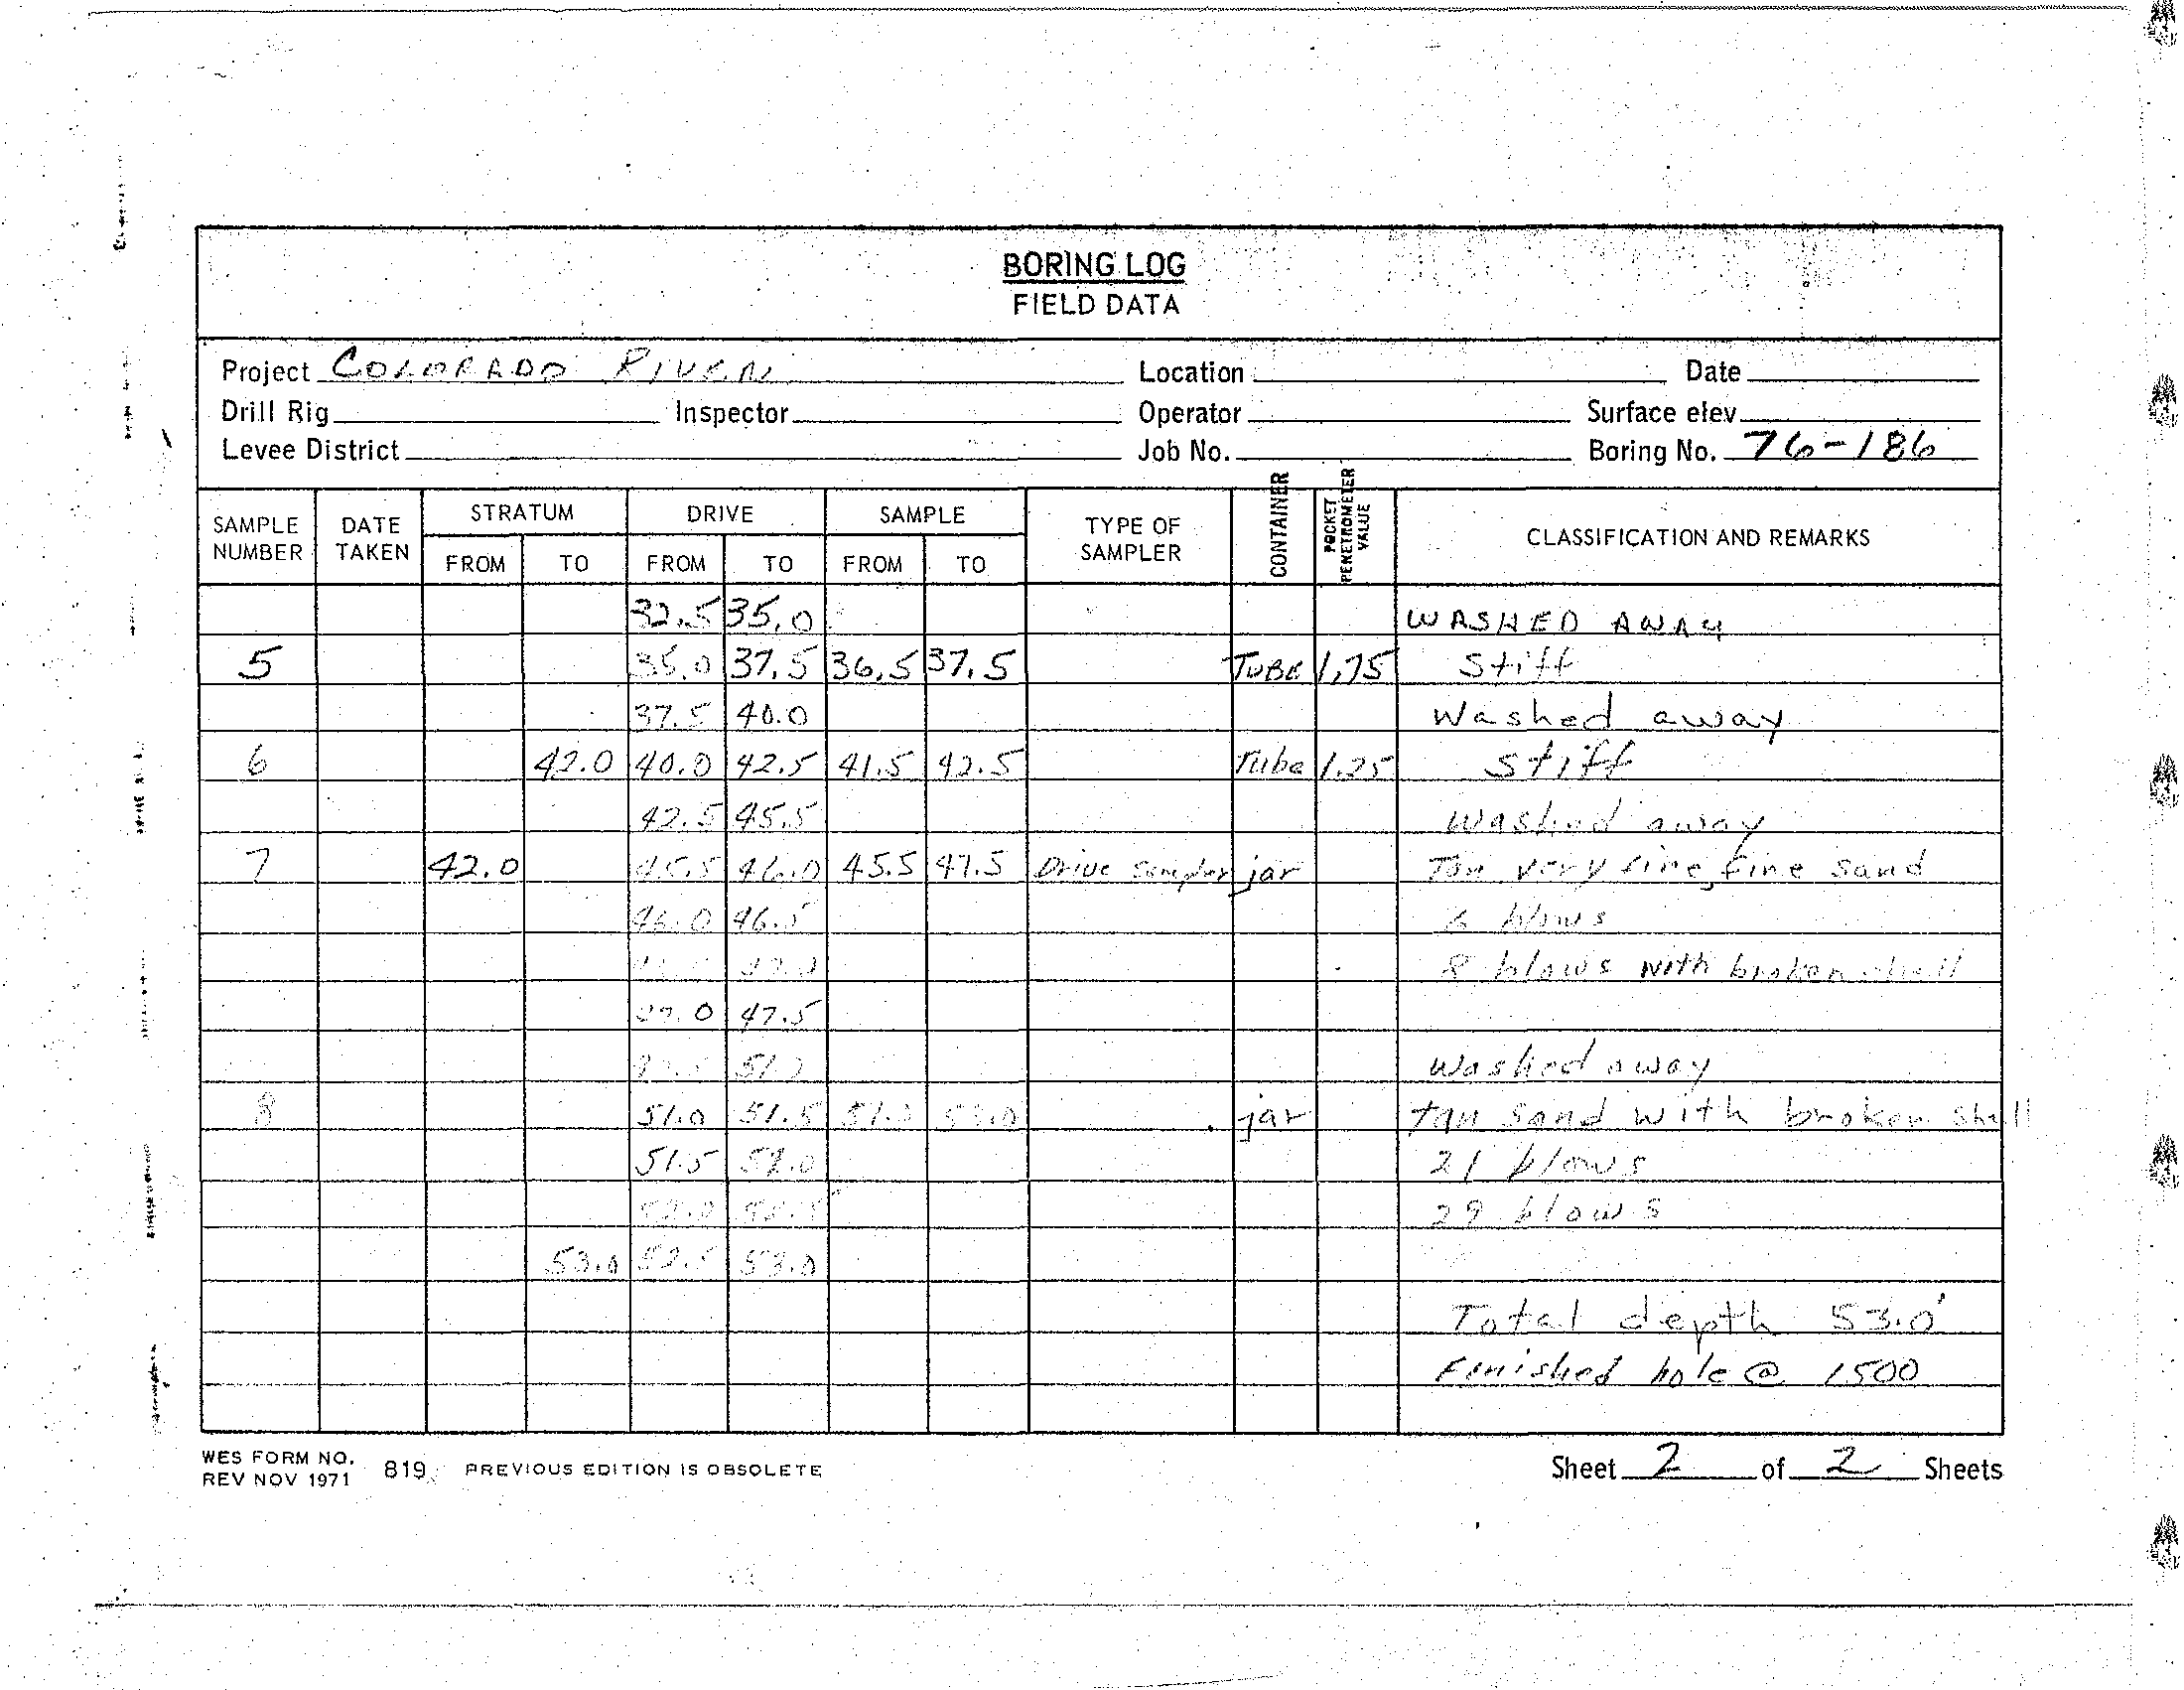 BORING LOG
FIELD DATA
Project COLORADO RIVER Location Date
Drill Rig Inspector Operator Surface elev.
Levee District Job No. Boring No. 76-186
SAMPLE NUMBER DATE TAKEN STRATUM FROM TO DRIVE FROM TO SAMPLE FROM TO TYPE OF SAMPLER CONTAINER POCKET PENETROMETER VALUE CLASSIFICATION AND REMARKS
32.5 35.0 WASHED AWAY
5 35.0 37.5 36.5 37.5 TUBE 1.75 Stiff
37.5 40.0 Washed away
6 42.0 40.0 42.5 41.5 42.5 Tube 1.25 Stiff
42.5 45.5 Washed away
7 42.0 45.5 46.0 45.5 47.5 Drive Sampler jar Tan very fine, fine sand
46.0 46.5 blows
8 blows with broken shell
47.0 47.5
51.0 Washed away
8 51.0 51.5 51.0 53.0 jar tan sand with broken shell
51.5 52.0 21 blows
52.0 52.5 29 blows
53.0 52.5 53.0
Total depth 53.0'
Finished hole @ 1500
WES FORM NO. 819 PREVIOUS EDITION IS OBSOLETE
REV NOV 1971
Sheet 2 of 2 Sheets